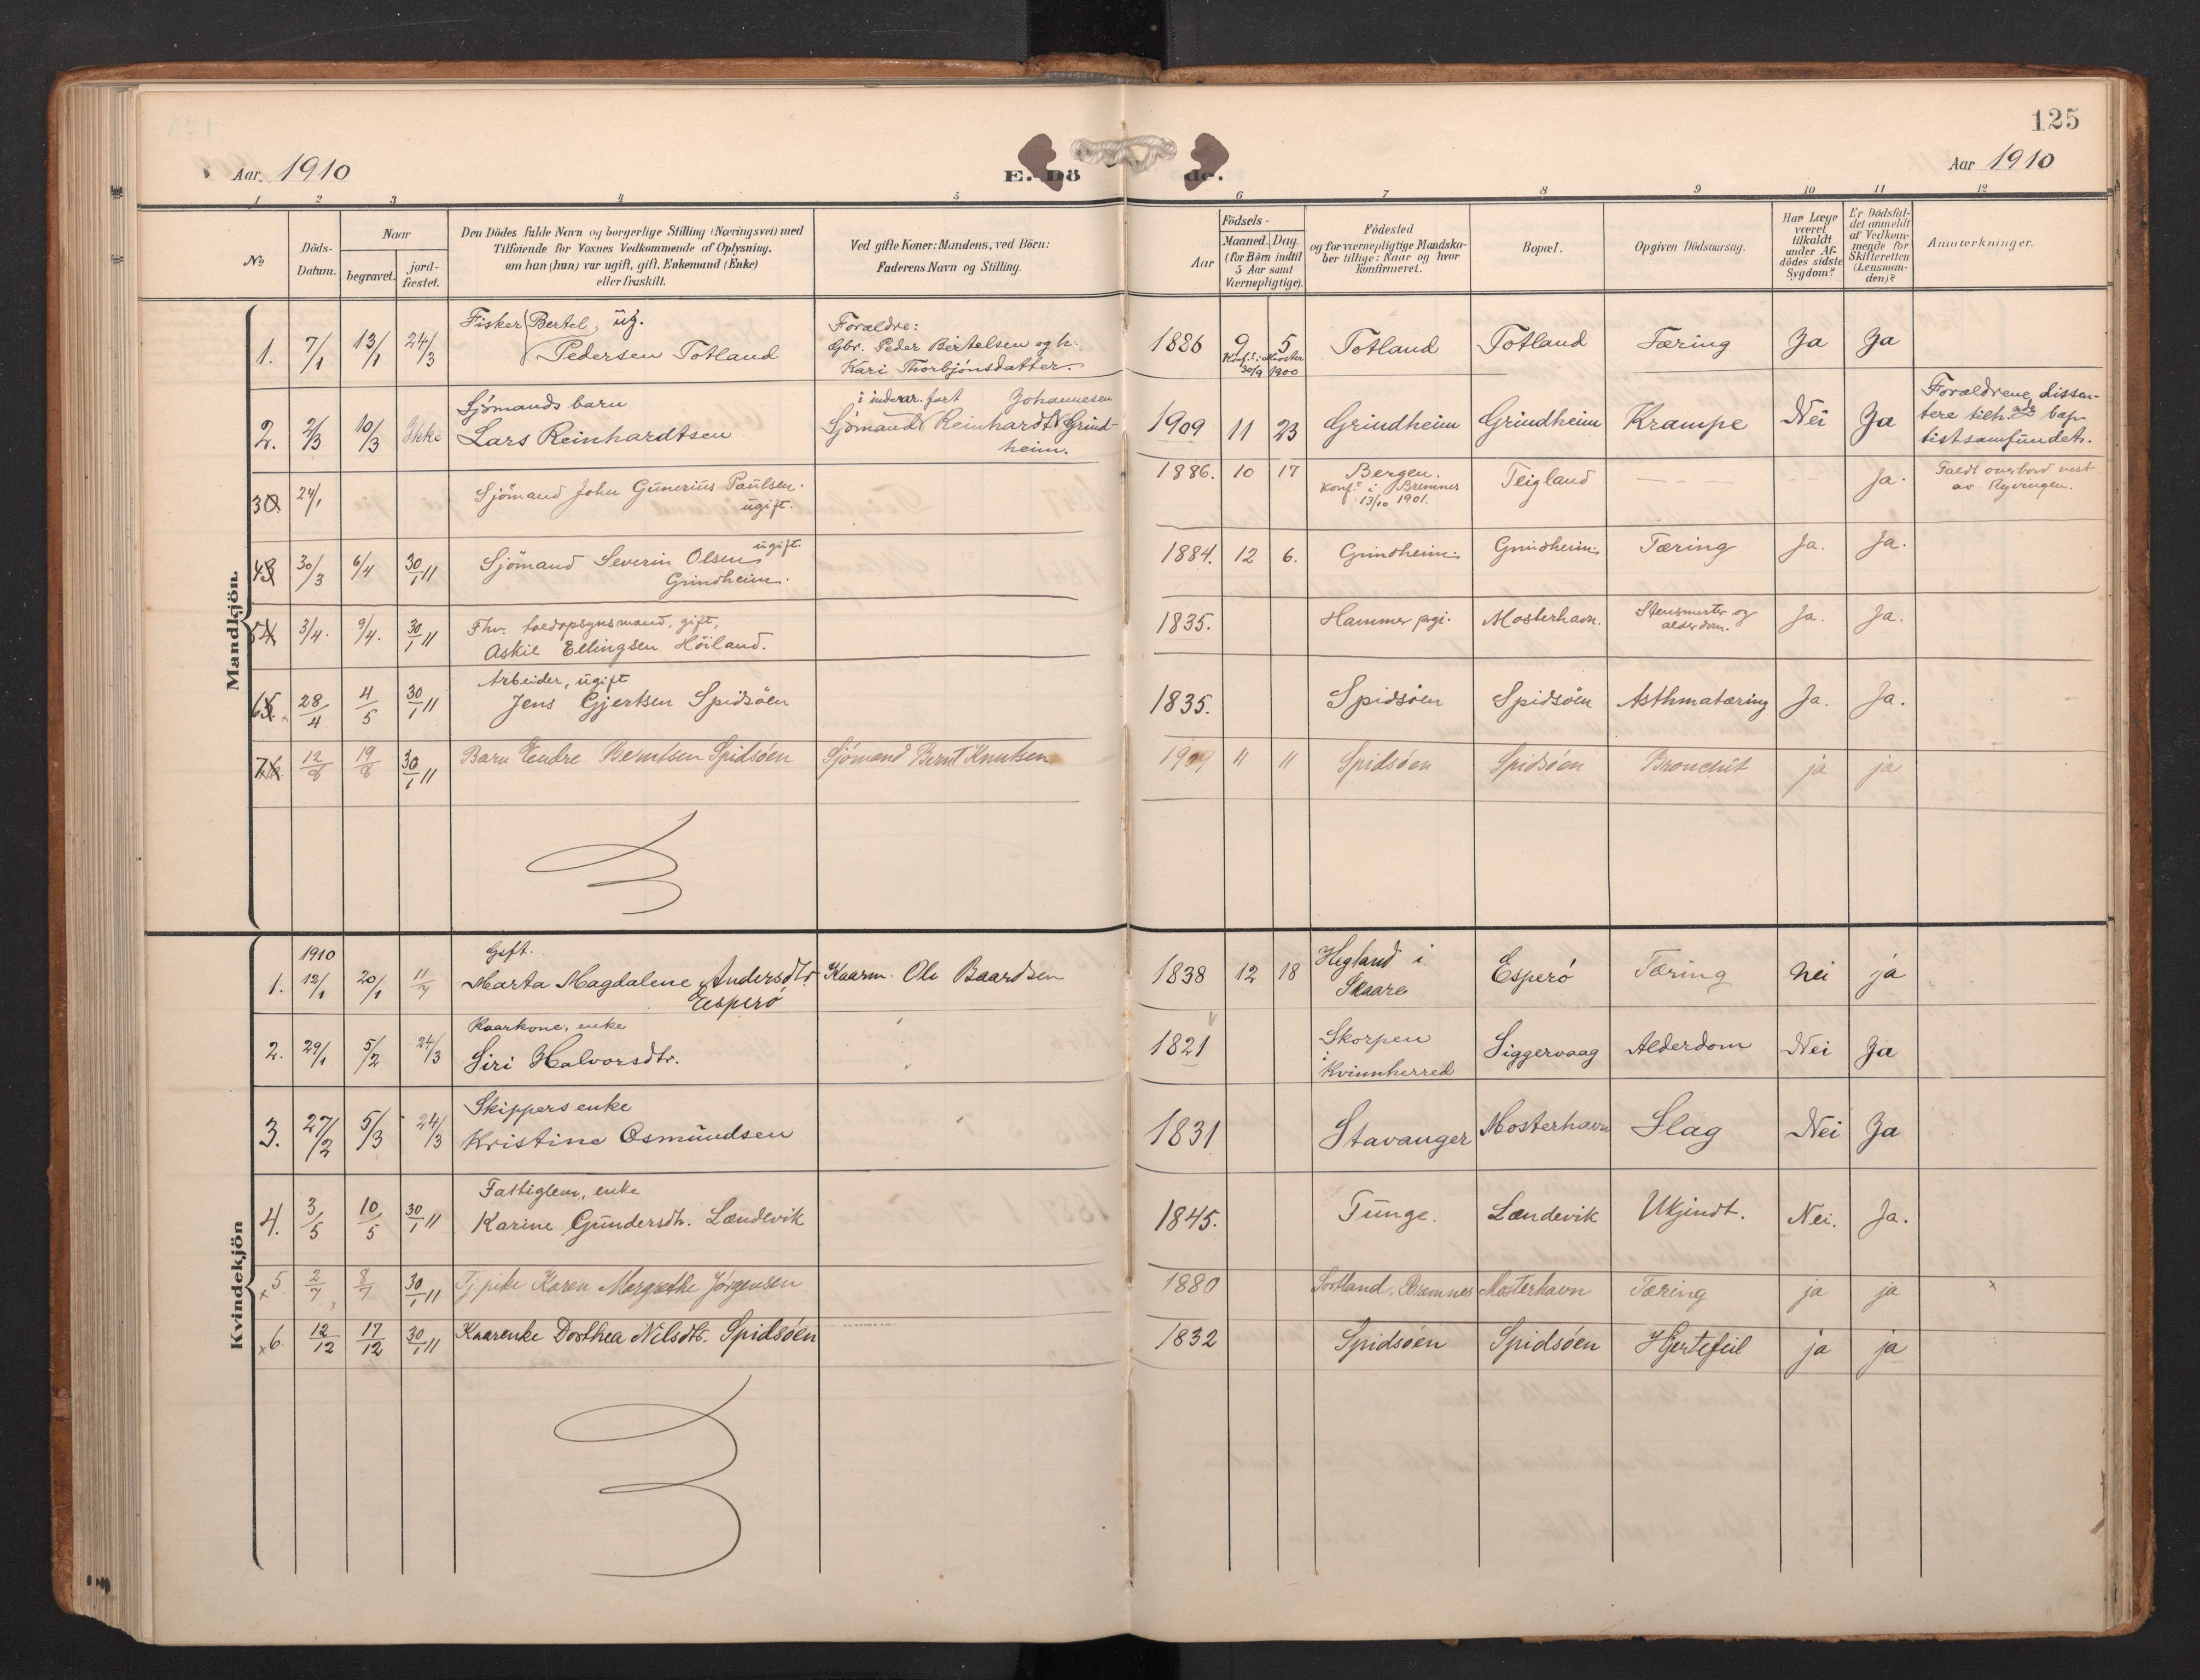 125
Aar 1910 E. Dö de. Aar 1910
1 2 3 4 5 6 7 8 9 10 11 12
No
Döds-Datum.
Naar
begravet.
jord-fæstet.
Den Dödes fulde Navn og borgerlige Stilling (Næringsvei) med
Tilföiende for Voxnes Vedkommende af Oplysning,
om han (hun) var ugift, gift, Enkemand (Enke)
eller fraskilt.
Ved gifte Koner: Mandens, ved Börn:
Faderens Navn og Stilling.
Födsels-
Aar
Maaned. Dag.
(for Börn indtil
5 Aar samt
Værnepligtige).
Födested
og for værnepligtige Mandska-
ber tillige: Naar og hvor
konfirmeret.
Bopæl.
Opgiven Dödsaarsag.
Har Læge
været
tilkaldt
under Af-
dödes sidste
Sygdom?
Er Dödsfal-
det anmeldt
af Vedkom-
mende for
Skifteretten
(Lensman-
den)?
Anmærkninger.
Mandkjön.
1. 7/1 13/1 24/3 Fisker Bertel, ug.
Pedersen Totland
Forældre:
Gbr. Peder Bertelsen og h.
Kari Thorbjönsdatter.
1886 9 5 Totland Totland Tæring Ja Ja
Konf. i Moster
30/9 1900
2. 2/3 10/3 Ikke Sjömands barn
Lars Reinhardtsen
i inderar. fart Johannesen
Sjömand Reinhardt Grind-
heim.
1909 11 23 Grindheim Grindheim Krampe Nei Ja
Forældrene dissen-
tere tilh. bap-
tistsamfundet.
3 24/1 " Sjömand John Gunerius Paulsen.
ugift.
1886. 10 17 Bergen.
Konf. i Bremnes
13/10 1901.
Teigland — — — Ja.
Faldt overbord vest
av Ryvingen.
4 30/3 6/4 30/1 11 Sjömand Severin Olsen ugift.
Grindheim.
1884. 12 6. Grindheim. Grindheim. Tæring Ja. Ja.
5 3/4. 9/4. 30/1 11 Fhv. toldopsynsmand, gift,
Askil Ellingsen Höiland.
1835. Hammer pgi. Mosterhavn. Stensmerter og
alderdom.
Ja. Ja.
6 28/4 4/5 30/1 11 Arbeider, ugift
Jens Gjertsen Spidsöen
1835. Spidsöen Spidsöen Asthmatæring Ja. Ja.
7 12/8 19/8 30/1 11 Barn Endre Berntsen Spidsöen Sjömand Bernt Knutsen
1909 11 11 Spidsöen Spidsöen Bronchit ja ja
Kvindekjön
1910
1. 12/1 20/1 11/7 Gift.
Marta Magdalene Andersdtr.
Esperö
Kaarm. Ole Baardsen
1838 12 18 Hegland i
Skaare
Esperö Tæring Nei ja
2. 29/1 5/2 24/3 Kaarkone, enke
Siri Halvorsdtr.
1821 Skorpen
i
Kvinnherred
Siggervaag Alderdom Nei Ja
3. 27/2 5/3 24/3 Skippers enke
Kristine Osmundsen
1831 Stavanger Mosterhavn Slag Nei Ja
4. 3/5 10/5 30/1 11 Fattiglem, enke
Karine Gundersdtr. Lændevik
1845. Tunge. Lændevik Ukjendt. Nei. Ja.
x 5 2/7 8/7 30/1 11 Tj pike Karen Margrethe Jörgensen
1880 Sortland, Bremnes Mosterhavn Tæring ja ja x
x 6. 12/12 17/12 30/1 11 Kaarenke Dorthea Nilsdtr. Spidsöen
1832 Spidsöen Spidsöen Hjertefeil ja ja